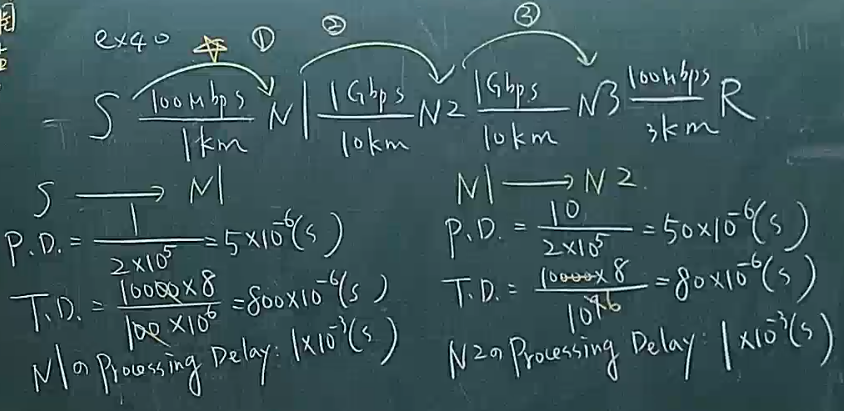 ex40 ① ② ③
S 100Mbps/1km N1 1Gbps/10km N2 1Gbps/10km N3 100Mbps/3km R
S → N1
P.D. = 1/2×10⁵ = 5×10⁻⁶(s)
T.D. = 10000×8/100×10⁶ = 800×10⁻⁶(s)
N1の Processing Delay: 1×10⁻³(s)
N1 → N2.
P.D. = 10/2×10⁵ = 50×10⁻⁶(s)
T.D. = 10000×8/10⁹ = 80×10⁻⁶(s)
N2の Processing Delay: 1×10⁻³(s)